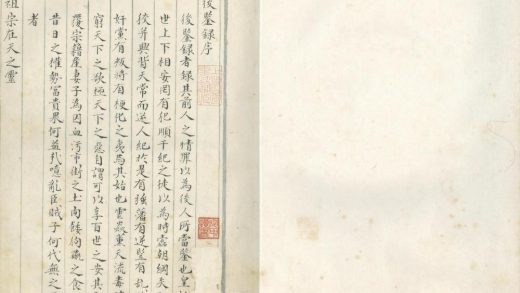 後鑒錄序
後鑒錄者錄其前人之情罪以為後人所當鑒也皇
世上下相安罔有犯順干紀之徒以為時 朝綱失
後并興背天常而逆人紀於是有強藩有逆豎有亂
奸黨有叛將有梗化之夷焉其始也 天流毒
窮天下之欲極天下之惡自謂可以享百世之安其
覆宗籍產妻子為囚血污市街之上肉餧狗彘之食
昔日之權勢富貴果何益哉噫亂臣賊子何代無之
者
祖宗在天之靈